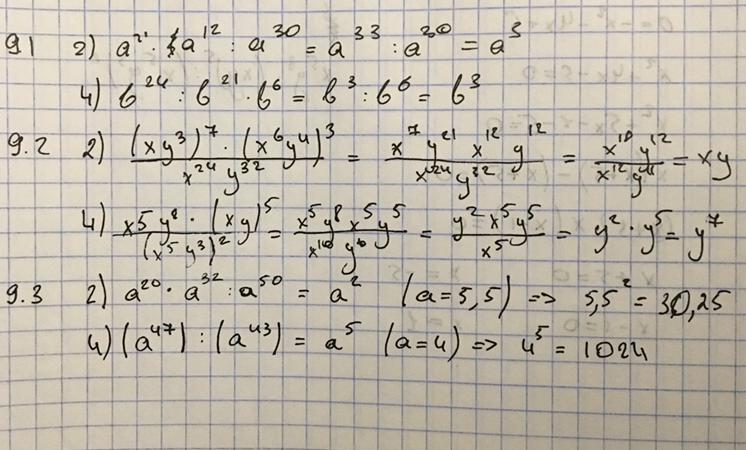 9.1 2) a²¹ · a¹² : a³⁰ = a³³ : a³⁰ = a³
4) b²⁴ : b²¹ · b⁶ = b³ : b⁶ = b³
9.2 2) (xy³)⁷ · (x⁶y⁴)³ / x²⁴y³² = x⁷ y²¹ x¹² y¹² / x²⁴y³² = x¹⁸ y¹² / x¹² y¹¹ = xy
4) x⁵y⁸ · (xy)⁵ / (x⁵y³)² = x⁵y⁸ x⁵y⁵ / x¹⁰ y⁶ = y² x⁵y⁵ / x⁵ = y² · y⁵ = y⁷
9.3 2) a²⁰ · a³² : a⁵⁰ = a² (a = 5,5) => 5,5² = 30,25
4) (a⁴⁷) : (a⁴³) = a⁵ (a = 4) => 4⁵ = 1024